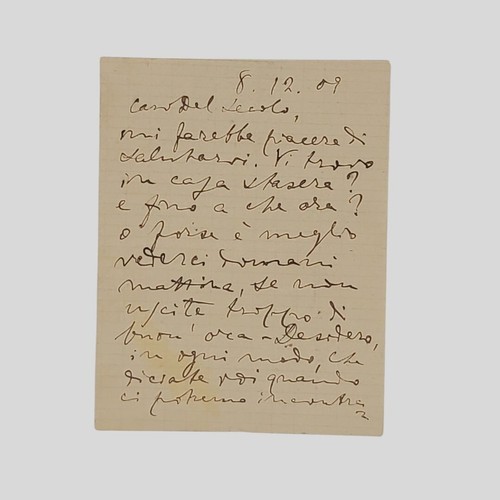 8. 12. 09
caro Del Secolo,
mi farebbe piacere di
salutarvi. Vi trovo
in casa stasera?
e fino a che ora?
o forse è meglio
vederci domani
mattina, se non
uscite troppo di
buon' ora – Desidero,
in ogni modo, che
diciate voi quando
ci potremo incontra